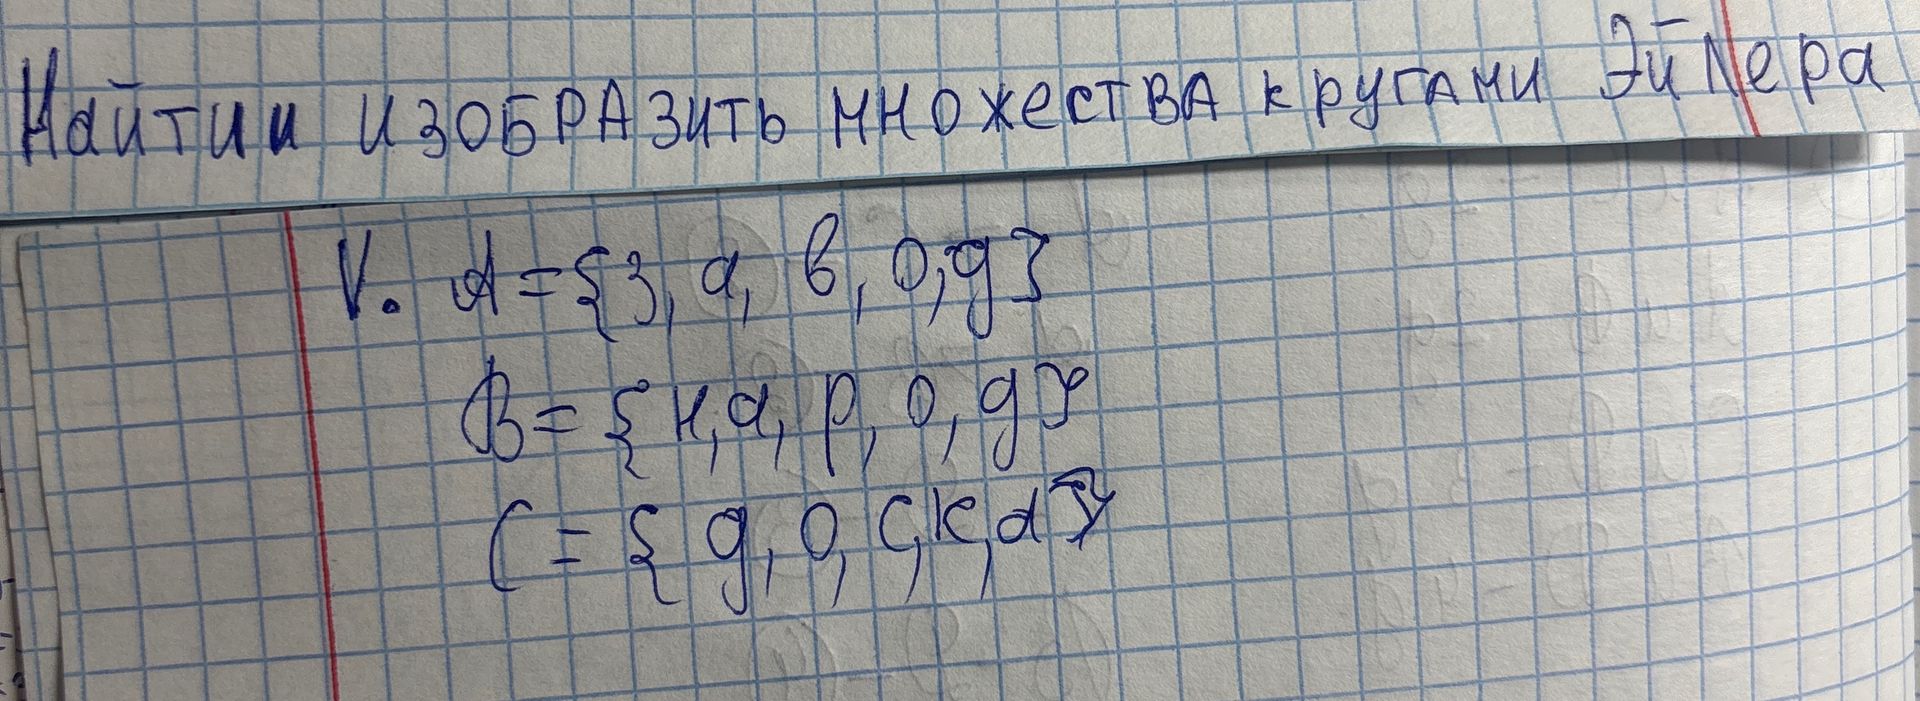 Найти и изобразить множества кругами Эйлера
V. A = {з, а, в, о, д}
B = {н, а, р, о, д}
C = {д, о, с, к, а}